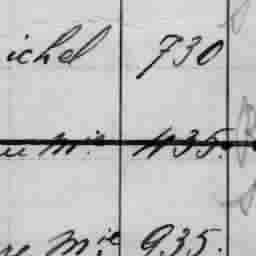 ichel 730
u Mie 435.
re Mie 935.